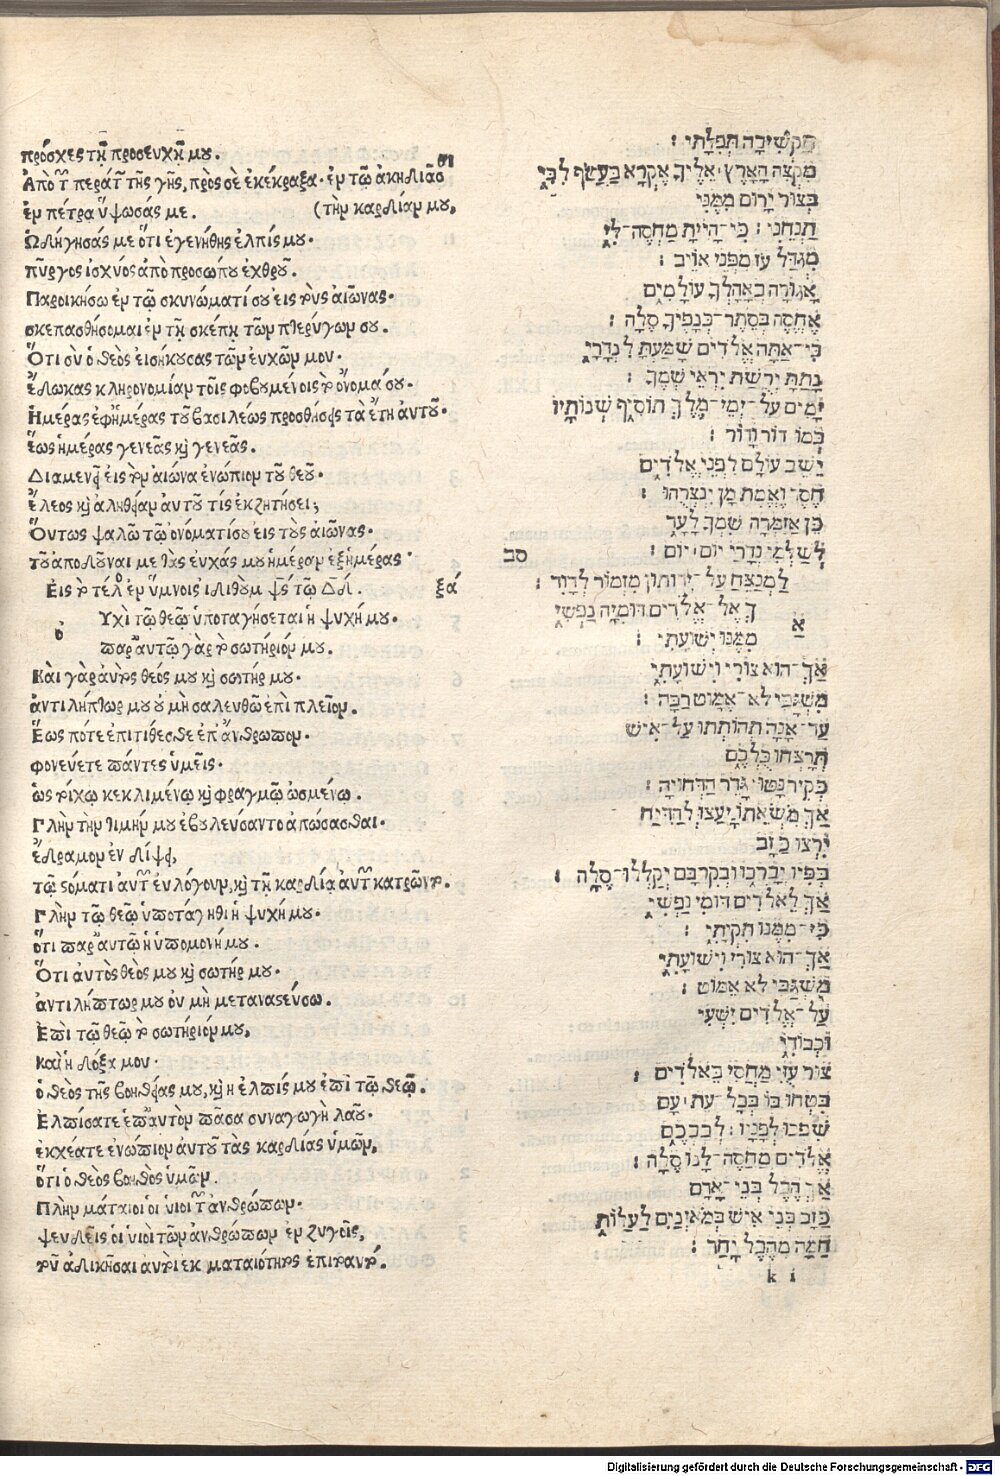 πρόσχες τῇ προσευχῇ μȣ.
Ἀπὸ τ͂ περάτ͂ τῆς γῆς, πρὸς σὲ ἐκέκραξα· ἐν τῷ ἀκηδιᾶσαι
ἐν πέτρα ὕψωσάς με. (τὴν καρδίαν μȣ,
Ὡδήγησάς με ὅτι ἐγενήθης ἐλπίς μȣ·
πῦργος ἰσχύος ἀπὸ προσώπȣ ἐχθρȣ͂.
Παροικήσω ἐν τῷ σκυνώματί σȣ εἰς τȣ̀ς αἰῶνας·
σκεπασθήσομαι ἐν τῇ σκέπῃ τῶν πτερύγων σȣ.
Ὅτι σὺ ὁ θεὸς εἰσήκȣσας τῶν εὐχῶν μου·
ἔδωκας κληρονομίαν τοῖς φοβȣμένοις τὸ ὄνομά σȣ·
Ἡμέρας ἐφ' ἡμέρας τȣ͂ βασιλέως προσθήσεις τὰ ἔτη ἀυτȣ͂·
ἕως ἡμέρας γενεᾶς κỳ γενεᾶς.
Διαμενεῖ εἰς τὸν αἰώνα ἐνώπιον τȣ͂ θεȣ͂·
ἔλεος κỳ ἀλήθειαν ἀυτȣ͂ τίς ἐκζητήσει;
Ὅυτως ψαλῶ τῷ ὀνοματί σȣ εἰς τȣ̀ς αἰῶνας·
τȣ͂ ἀποδȣ͂ναι με τὰς ἐυχάς μȣ ἡμέραν ἐξ ἡμέρας·
Εἰς τὸ τέλος ἐν ὕμνοις ἰδιθȣ̀μ ψς̃ τῷ Δδί. ξά
ὀ
Υχὶ τῷ θεῷ ὑποταγήσεται ἡ ψυχή μȣ·
παρ' ἀυτῷ γὰρ τὸ σωτήριόν μȣ.
Κὰι γὰρ ἀυτὸς θεός μȣ κỳ σωτήρ μȣ·
ἀντιλήπτωρ μȣ ȣ̓ μὴ σαλευθῶ ἐπὶ πλεῖον.
Ἕως πότε ἐπιτίθεσθε ἐπ' ἄνθρωπον·
φονεύετε πάντες ὑμεῖς·
ὡς τοίχῳ κεκλιμένῳ κỳ φραγμῷ ὠσμένῳ.
Πλὴν τὴν τιμήν μȣ ἐβȣλεύσαντο ἀπώσασθαι·
ἔδραμον ἐν δίψει,
τῷ στόματι ἀυτ͂ ἐυλόγουν, κỳ τῇ καρδίᾳ ἀυτ͂ κατηρῶντο.
Πλὴν τῷ θεῷ ὑποτάγηθι ἡ ψυχή μȣ·
ὅτι παρ' ἀυτῷ ἡ ὑπομονή μȣ.
Ὅτι ἀυτὸς θεός μȣ κỳ σωτήρ μȣ·
ἀντιλήπτωρ μȣ ὀυ μὴ μεταναστεύσω.
Ἐπὶ τῷ θεῷ τὸ σωτήριόν μȣ,
καὶ ἡ δόξα μου·
ὁ θεὸς τῆς βοηθείας μȣ, κỳ ἡ ἐλπίς μȣ ἐπὶ τῷ θεῷ.
Ἐλπίσατε ἐπ' ἀυτὸν πᾶσα συναγωγὴ λαȣ͂·
ἐκχέατε ἐνώπιον ἀυτȣ͂ τὰς καρδίας ὑμῶν,
ὅτι ὁ θεὸς βοηθὸς ὑμῶν.
Πλὴν μάταιοι ὁι ὑιοὶ τ͂ ἀνθρώπων·
ψευδεῖς ὁι ὑιοὶ τῶν ἀνθρώπων ἐν ζυγοῖς,
τȣ͂ ἀδικῆσαι ἀυτοὶ ἐκ ματαιότητος ἐπιτοαυτό.
הַקְשִׁיבָה תְּפִלָּתִי :
מִקְצֵה הָאָרֶץ אֵלֶיךָ אֶקְרָא בַּעֲטֹף לִבִּי
בְּצוּר יָרוּם מִמֶּנִּי
תַנְחֵנִי : כִּי־הָיִיתָ מַחְסֶה־לִי
מִגְדַּל עֹז מִפְּנֵי אוֹיֵב :
אָגוּרָה בְאָהָלְךָ עוֹלָמִים
אֶחֱסֶה בְּסֵתֶר־כְּנָפֶיךָ סֶלָה :
כִּי־אַתָּה אֱלֹדִים שָׁמַעְתָּ לִנְדָרָי
נָתַתָּ יְרֻשַּׁת יִרְאֵי שְׁמֶךָ :
יָמִים עַל־יְמֵי־מֶלֶךְ תּוֹסִיף שְׁנוֹתָיו
כְּמוֹ דוֹר וָדוֹר :
יֵשֵׁב עוֹלָם לִפְנֵי אֱלֹדִים
חֶסֶד וֶאֱמֶת מַן יִנְצְרֻהוּ :
כֵּן אֲזַמְּרָה שִׁמְךָ לָעַד
לְשַׁלְּמִי נְדָרַי יוֹם ׀ יוֹם : סב
לַמְנַצֵּחַ עַל־יְדוּתוּן מִזְמוֹר לְדָוִד :
א
ךְ אֶל־אֱלֹדִים דּוּמִיָּה נַפְשִׁי
מִמֶּנּוּ יְשׁוּעָתִי :
אַךְ־הוּא צוּרִי וִישׁוּעָתִי
מִשְׂגַּבִּי לֹא־אֶמּוֹט רַבָּה :
עַד־אָנָה תְּהוֹתְתוּ עַל־אִישׁ
תְּרָצְּחוּ כֻלְּכֶם
כְּקִיר נָטוּי גָּדֵר הַדְּחוּיָה :
אַךְ מִשְּׂאֵתוֹ יָעֲצוּ לְהַדִּיחַ
יִרְצוּ כָזָב
בְּפִיו יְבָרֵכוּ וּבְקִרְבָּם יְקַלְלוּ־סֶלָה :
אַךְ לֵאלֹדִים דּוֹמִּי נַפְשִׁי
כִּי־מִמֶּנּוּ תִּקְוָתִי :
אַךְ־הוּא צוּרִי וִישׁוּעָתִי
מִשְׂגַּבִּי לֹא אֶמּוֹט :
עַל־אֱלֹדִים יִשְׁעִי
וּכְבוֹדִי
צוּר עֻזִּי מַחְסִי בֵּאלֹדִים :
בִּטְחוּ בוֹ בְכָל־עֵת ׀ עָם
שִׁפְכוּ לְפָנָיו : לְבַבְכֶם
אֱלֹדִים מַחֲסֶה־לָּנוּ סֶלָה :
אַךְ הֶבֶל בְּנֵי־אָדָם
כָּזָב בְּנֵי אִישׁ בְּמֹאזְנַיִם לַעֲלוֹת
הֵמָּה מֵהֶבֶל יָחַד :
k i
Digitalisierung gefördert durch die Deutsche Forschungsgemeinschaft - DFG